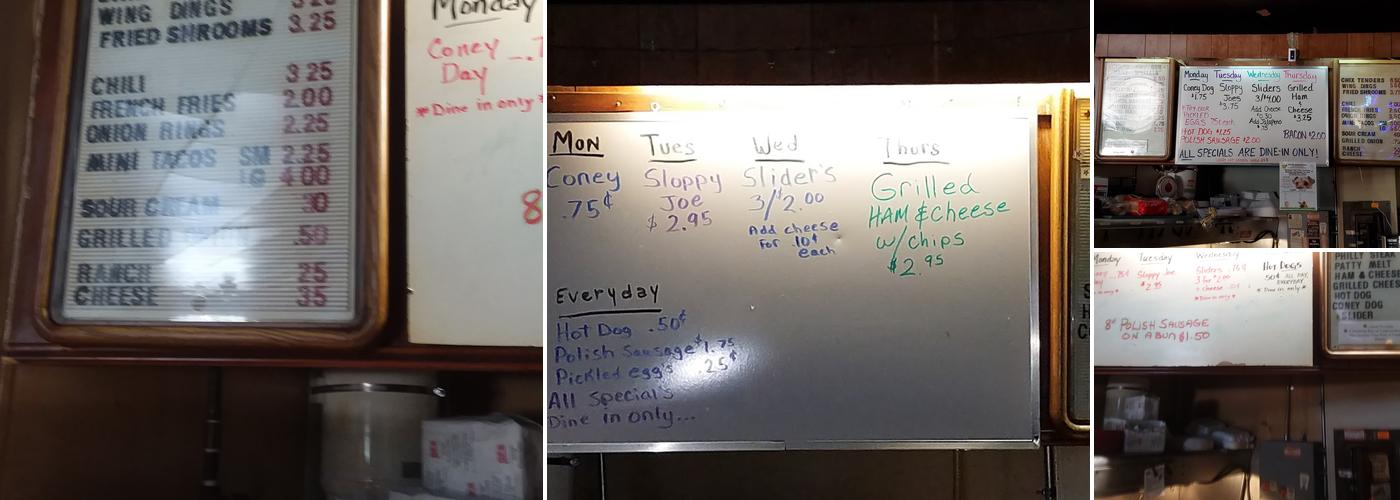 WING DINGS 3.25
FRIED SHROOMS 3.25
CHILI 3 25
FRENCH FRIES 2.00
ONION RINGS 2.25
MINI TACOS SM 2.25
LG 4 00
SOUR CREAM 30
GRILLED .50
RANCH 25
CHEESE 35
Monday
Coney
Day
*Dine in only*
8
Mon
Coney
.75¢
Tues
Sloppy
Joe
$2.95
Wed
Slider's
3/$2.00
Add cheese
For .10¢
each
Thurs
Grilled
HAM & Cheese
w/chips
$2.95
Everyday
Hot Dog .50¢
Polish Sausage $1.75
Pickled egg's .25¢
All Special's
Dine in only...
Monday Tuesday Wednesday Thursday
Coney Dog
$1.75
Sloppy
Joes
$3.75
Sliders
3/$4.00
Add Cheese
$0.30
Add Jalapeño
Grilled
Ham
&
Cheese
$3.25
PICKLED
EGGS 75¢ each
HOT DOG $1.25
POLISH SAUSAGE $2.00
BACON $2.00
ALL SPECIALS ARE DINE-IN ONLY!
CHIX TENDERS
WING DINGS
FRIED SHROOMS
CHILI
SOUR CREAM
GRILLED ONION
RANCH
CHEESE
Monday Tuesday Wednesday
Sloppy Joe
$2.95
Sliders .76¢
3 for $2.00
+ cheese
*Dine in only*
Hot Dogs
50¢ ALL DAY,
EVERYDAY
*Dine in only*
8" POLISH SAUSAGE
ON A BUN $1.50
PHILLY STEAK
PATTY MELT
HAM & CHEESE
GRILLED CHEES
HOT DOG
CONEY DOG
SLIDER